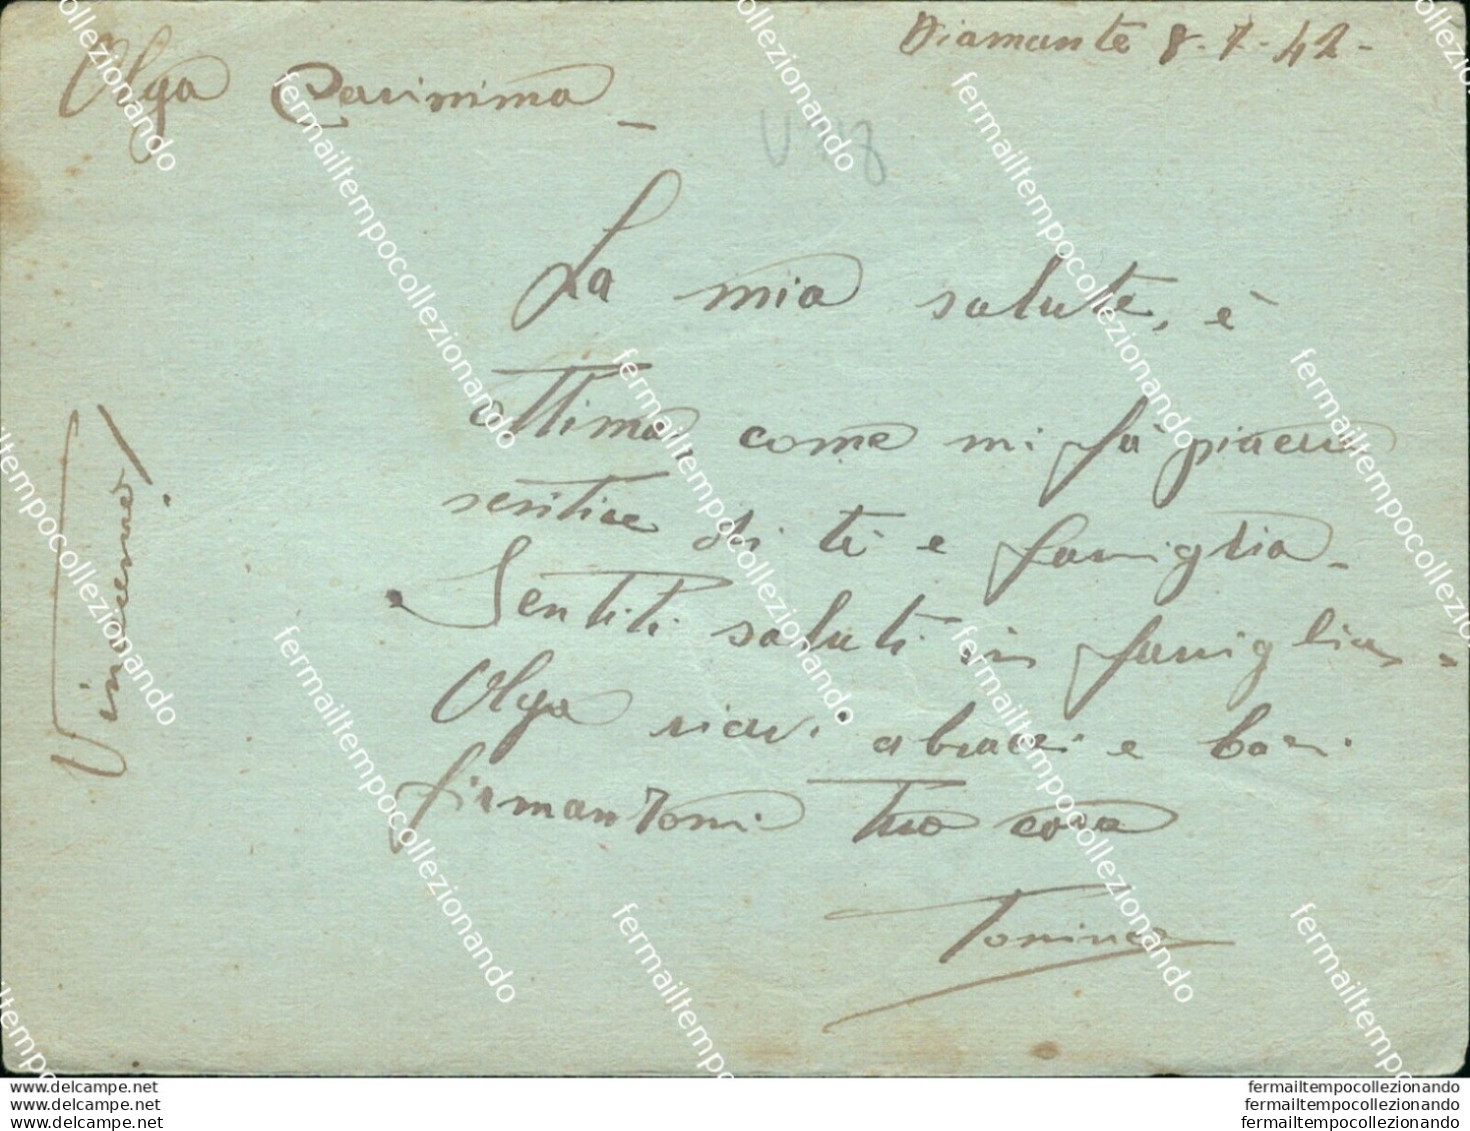 Diamante 8-7-42-
Olga Carinima
V 18
La mia salute, è
ottima, come mi fà piacere
sentire di te e famiglia-
Sentiti saluti in famiglia-
Olga ricevi abracci e baci
firmandomi Tuo caro
Tonino
Vinceremo!
www.delcampe.net
www.delcampe.net
www.delcampe.net
fermailtempocollezionando
fermailtempocollezionando
fermailtempocollezionando